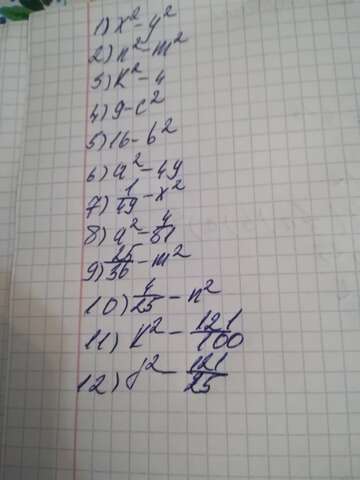 1) x² - y²
2) n² - m²
3) k² - 4
4) 9 - c²
5) 16 - b²
6) a² - 49
7) 1/49 - x²
8) a² - 4/81
9) 25/36 - m²
10) 4/25 - n²
11) k² - 121/100
12) y² - 121/25